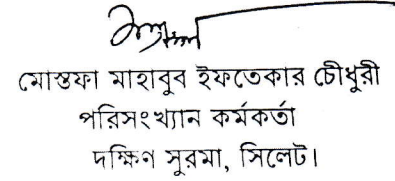 মোস্তফা মাহাবুব ইফতেকার চৌধুরী
পরিসংখ্যান কর্মকর্তা
দক্ষিণ সুরমা, সিলেট।